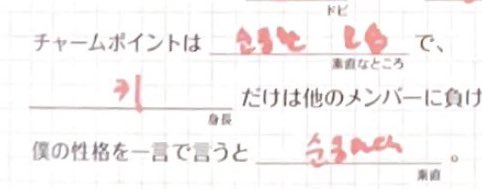 ドビ
チャームポイントは で、
素直なところ
키 だけは他のメンバーに負け
身長
僕の性格を一言で言うと 。
素直